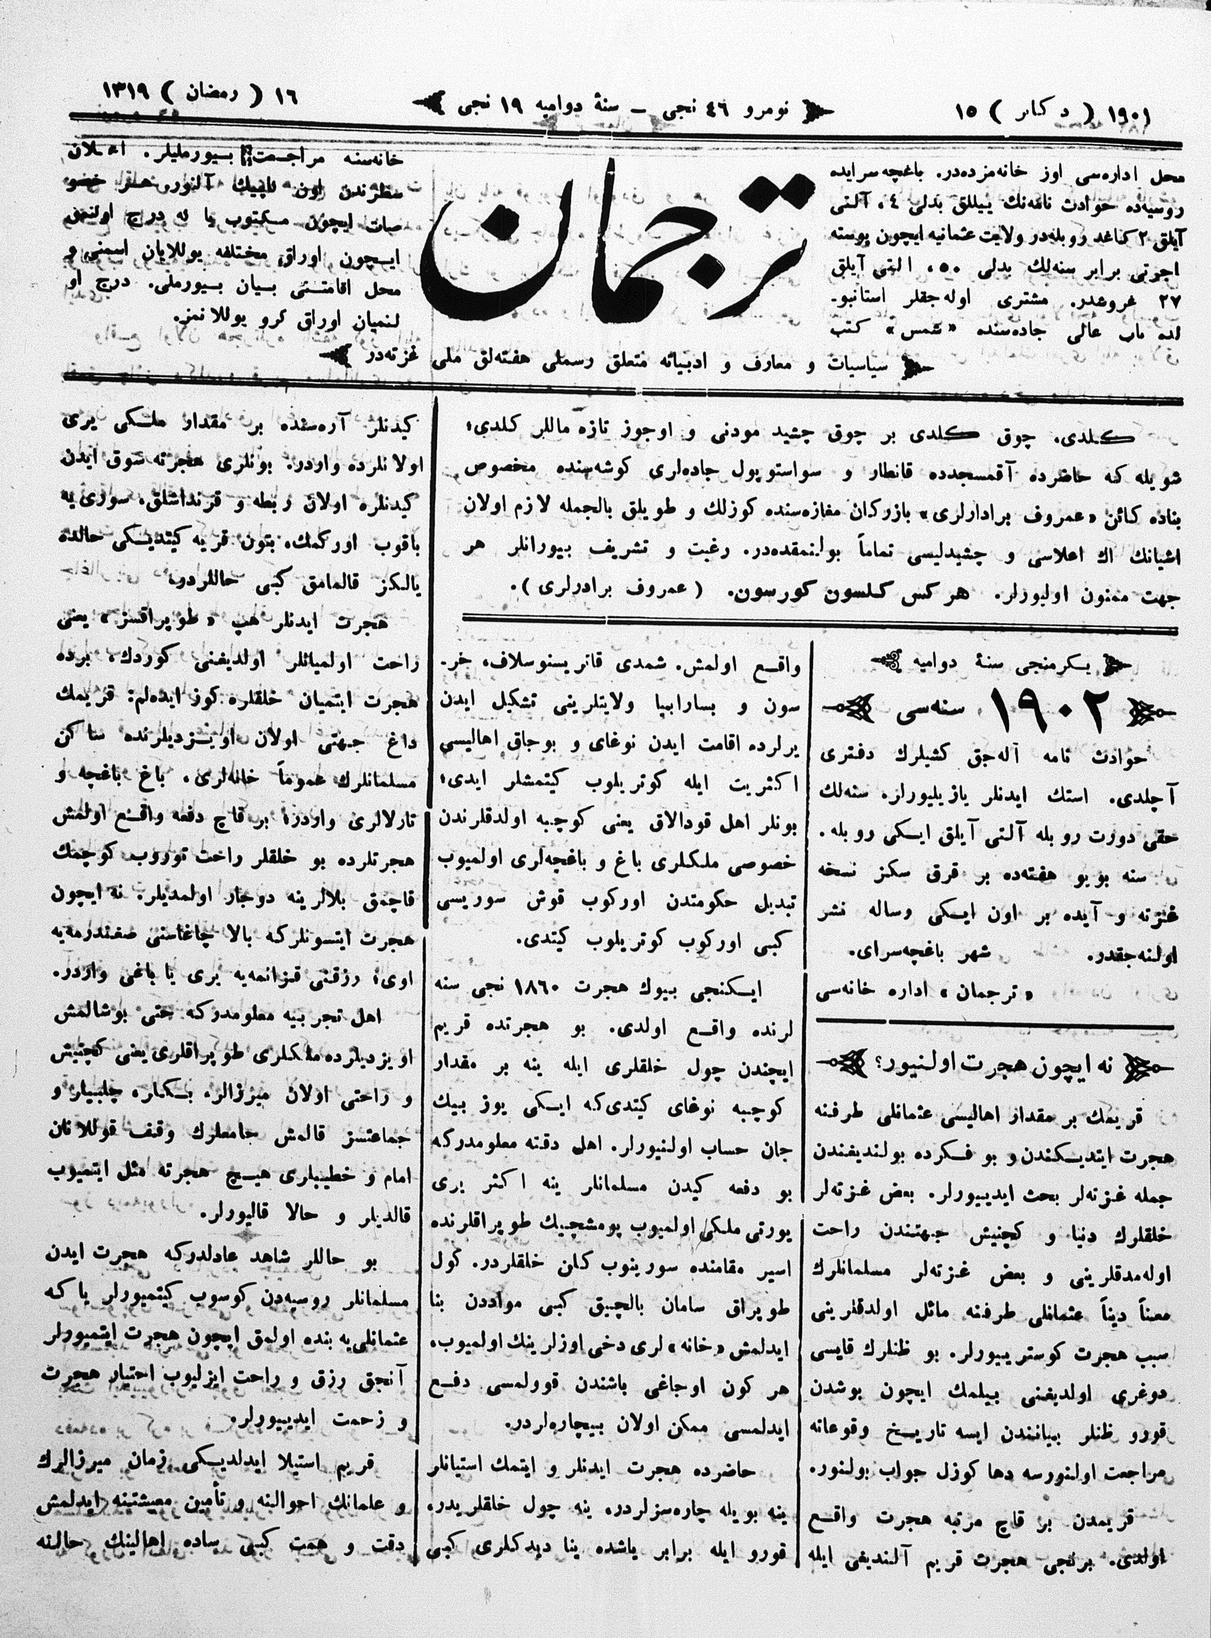 ١٩٠١ ( دكابر ) ١٥
نومرو ٤٦ نجی – سنهٔ دوامیه ١٩ نجی
١٦ ( رمضان ) ١٣١٩
محل اداره‌سی اوز خانه‌مزده‌در. باغچه‌سرایده
روسیه‌ده حوادث نامه‌نك ییللق بدلی ٤، آلتی
آیلق ٢ كاغد روبله‌در ولایت عثمانیه ایچون پوسته
اجرتی برابر سنه‌لك بدلی ٥٠، التی آیلق
٢٧ غروعدر. مشتری اوله‌جقلر استانبو۔
لده باب عالی جاده‌سنده «شمس» كتب
ترجمان
خانه‌سنه مراجعت بیورملیلر. اعلان
سطرندن اون كاپیك آلنور
ایچون مكتوب یا درج اولنمق
ایچون اوراق مختلفه یوللایان اسمنی و
محل اقامتنی بیان بیورملی. درج او
لنمیان اوراق كرو یوللانمز.
سیاسیات و معارف و ادبیاته متعلق رسملی هفته‌لق ملی غزته‌در
كلدی. چوق كلدی بر چوق چشید مودنی و اوجوز تازه ماللر كلدی؛
شویله كه حاضرده آقمسجدده قانطار و سواستوپول جاده‌لری كوشه‌سنده مخصوص
بناده كائن «عمروف برادارلری» بازركان مغازه‌سنده كوزلك و طویلق بالجمله لازم اولان
اشیانك اك اعلاسی و چشیدلیسی تماماً بولنمقده‌در. رغبت و تشریف بیورانلر هر
جهت ممنون اولیورلر. هركس كلسون كورسون. (عمروف برادرلری).
یكرمنجی سنهٔ دوامیه
١٩٠٢ سنه‌سی
حوادث نامه آله‌جق كشیلرك دفتری
آچلدی. استك ایدنلر یازیلیورلر. سنه‌لك
حقی دورت روبله آلتی آیلق ایكی روبله.
سنه بویو هفته‌ده بر قرق سكز نسخه
غزته و آیده بر اون ایكی رساله نشر
اولنه‌جقدر. شهر باغچه‌سرای.
«ترجمان» اداره خانه‌سی
نه ایچون هجرت اولنیور؟
قریمك بر مقدار اهالیسی عثمانلی طرفنه
هجرت ایتدیكندن و بو فكرده بولندیغندن
جمله غزته‌لر بحث ایدییورلر. بعض غزته‌لر
خلقلرك دنیا و كچنیش جهتندن راحت
اوله‌مدقلرینی و بعض غزته‌لر مسلمانلرك
معناً دیناً عثمانلی طرفنه مائل اولدقلرینی
سبب هجرت كوستریییورلر. بو ظنلرك قایسی
دوغری اولدیغنی بیلمك ایچون بوشدن
قورو ظنلر بیانندن ایسه تاریخ وقوعاته
مراجعت اولنورسه دها كوزل جواب بولنور.
قریمدن بر قاچ مرتبه هجرت واقع
اولدی. برنجی هجرت قریم آلندیغی ایله
واقع اولمش. شمدی قاتریسنوسلاف، خر۔
سون و بسارابیا ولایتلرینی تشكیل ایدن
یرلرده اقامت ایدن نوغای و بوجاق اهالیسی
اكثریت ایله كوتریلوب كیتمشلر ایدی؛
بونلر اهل قودالاق یعنی كوچبه اولدقلرندن
خصوصی ملكلری باغ و باغچه‌لری اولمیوب
تبدیل حكومتدن اوركوب قوش سوریسی
كبی اوركوب كوتریلوب كیتدی.
ایكنجی بیوك هجرت ١٨٦٠ نجی سنه
لرنده واقع اولدی. بو هجرتده قریم
ایچندن چول خلقلری ایله ینه بر مقدار
كوچبه نوغای كیتدی‌كه ایكی یوز بیك
جان حساب اولنیورلر. اهل دقته معلومدركه
بو دفعه كیدن مسلمانلر ینه اكثر یری
یورتی ملكی اولمیوب پومشچیك طوپراقلرنده
اسیر مقامنده سورینوب كلن خلقلردر. كول
طوپراق سامان بالچیق كبی موادن بنا
ایدلمش «خانه» لری دخی اوزلرینك اولمیوب،
هر كون اوجاغی باشندن قوولمسی دفع
ایدلمسی ممكن اولان بیچاره‌لردر.
حاضرده هجرت ایدنلر و ایتمك استیانلر
ینه بویله چاره‌سزلردر. ینه چول خلقلریدر.
قورو ایله برابر یاشده ینا دیدكلری كبی
كیدنلر آره‌سنده بر مقدار ملكی یری
اولانلرده واردر. بونلری هجرته سوق ایدن
كیدنلره اولان ربطه و قرنداشلق، سوری‌یه
باقوب اوركمك، بتون قریه كیتدیكی حالده
یالكز قالمامق كبی حاللردر.
هجرت ایدنلر هپ «طوپراقسز» یعنی
راحت اولمیانلر اولدیغنی كوردك، برده
هجرت ایتمیان خلقلره كوز ایده‌لم: قریمك
داغ جهتی اولان اویزدیلرنده ساكن
مسلمانلرك عموماً خانه‌لری، باغ باغچه و
تارلالری واردر؛ بر قاچ دفعه واقع اولمش
هجرتلرده بو خلقلر راحت توروب كوچمك
قاچمق بلالرینه دوچار اولمدیلر. نه ایچون
هجرت ایتسونلركه بالا چاغاسنی صغندرمه‌یه
اوی؛ رزقنی قزانمه‌یه یری یا باغی واردر.
اهل تجربیه معلومدركه حتی بوشالمش
اویزدیلرده ملكلری طوپراقلری یعنی كچنیش
و راحتی اولان میرزالر، بكلر، چلبیلر و
جماعتسز قالمش جامعلرك وقف قوللانان
امام و خطیبلری هیچ هجرته مثل ایتمیوب
قالدیلر و حالا قالیورلر.
بو حاللر شاهد عادلدركه هجرت ایدن
مسلمانلر روسیه‌دن كوسوب كیتمیورلر یاكه
عثمانلی‌یه بنده اولمق ایچون هجرت ایتمیورلر
آنجق رزق و راحت ایزلیوب اختیار هجرت
و زحمت ایدییورلر.
قریم استیلا ایدلدیكی زمان میرزالرك
و علمانك احوالنه و تأمین معیشتینه ایدلمش
دقت و همت كبی ساده اهالینك حالنه